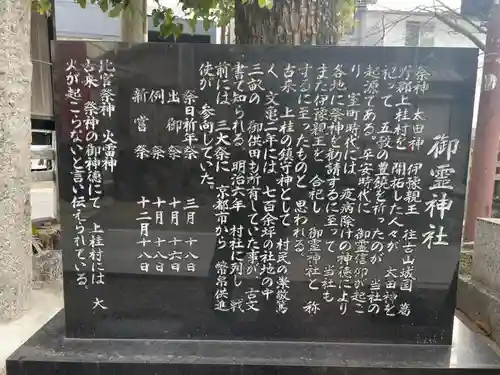 御霊神社
祭神 太田神 伊豫親王 往古山城国 葛
野郡上桂村を 開拓した人々が 太田神を
祀って 五穀の豊穣を祈ったのが 当社の
起源である。平安時代に 御霊信仰が起こ
り 室町時代には 疫病除けの神徳により
各地に祭神を勧請するに至って 当社も
また伊豫親王を 合祀し 御霊神社と 称
するに至ったものと 思われる。
古来 上桂の鎮守神として 村民の崇敬篤
く 文亀二年には 七百余坪の社地の中
三畝の 御供田も所有していた事が 古文
書で知られる。明治六年 村社に列し 戦
前には 三大祭に 京都市から 幣帛供進
使が 参向していた。
祭日祈年祭 三月十八日
出御祭 十月十六日
例祭 十月十八日
新嘗祭 十二月十八日
北宮祭神 火雷神
古来 祭神の御神徳にて 上桂村には 大
火が起こらないと言い伝えられている。
御霊神社